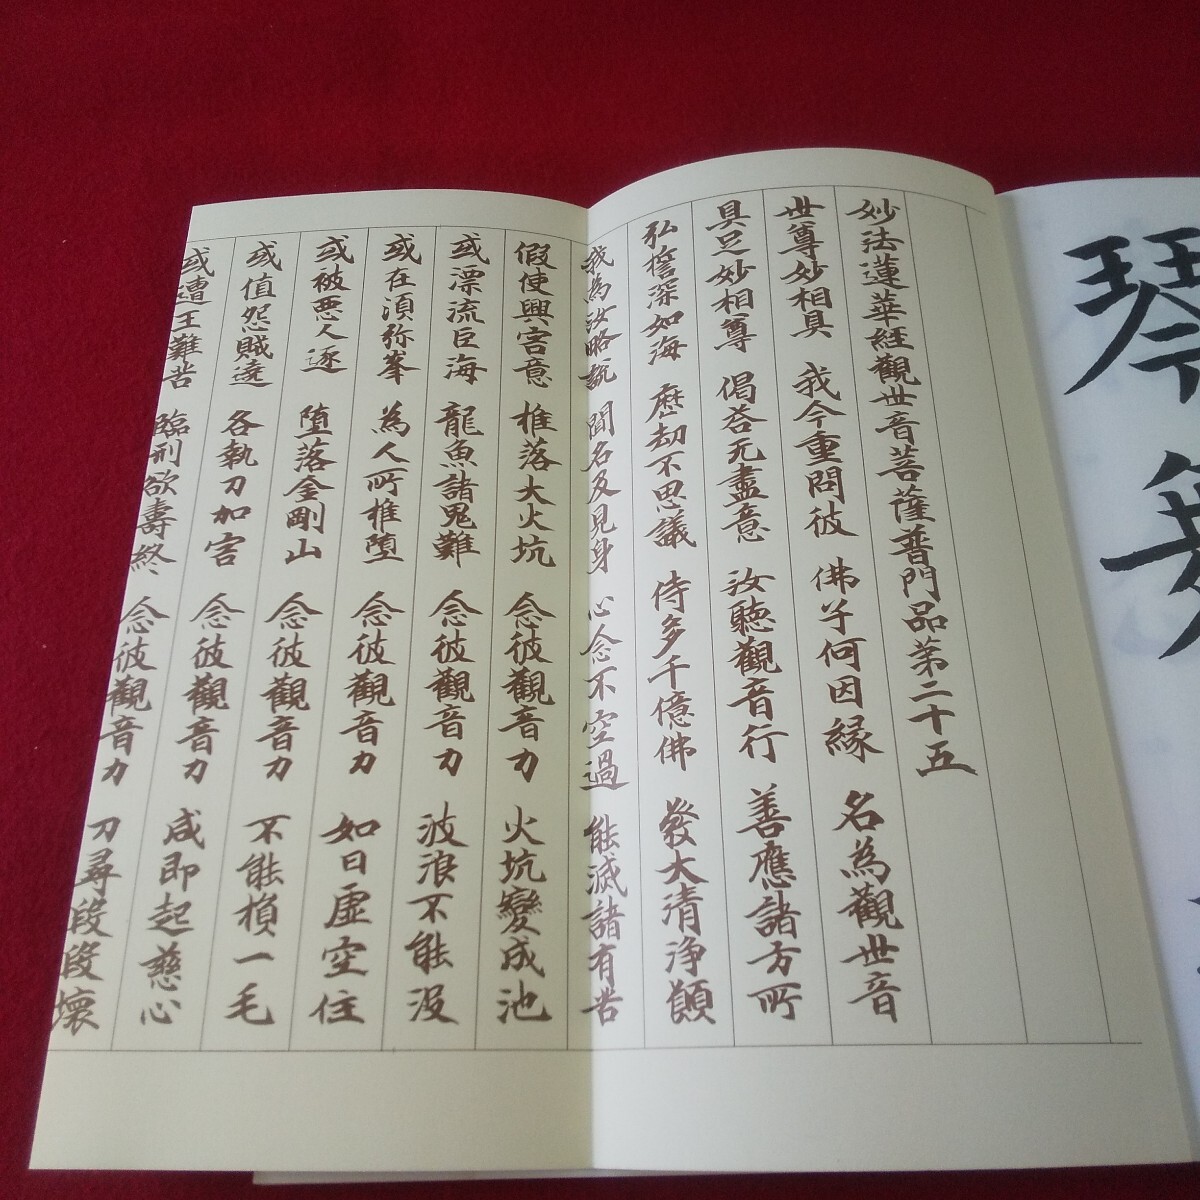 琴
妙法蓮華經觀世音菩薩普門品第二十五
世尊妙相具 我今重問彼 佛子何因縁 名為觀世音
具足妙相尊 偈荅无盡意 汝聽觀音行 善應諸方所
弘誓深如海 歷劫不思議 侍多千億佛 發大清浄願
我為汝略説 聞名及見身 心念不空過 能滅諸有苦
假使興害意 推落大火坑 念彼觀音力 火坑變成池
或漂流巨海 龍魚諸鬼難 念彼觀音力 波浪不能没
或在湏弥峯 為人所推墮 念彼觀音力 如日虚空住
或被悪人逐 墮落金剛山 念彼觀音力 不能損一毛
或值怨賊遶 各執刀加害 念彼觀音力 咸即起慈心
或遭王難苦 臨刑欲壽終 念彼觀音力 刀尋段段壊